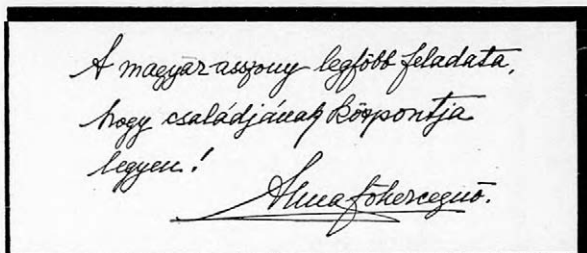 A magyar asszony legfőbb feladata,
hogy családjának központja
legyen!
Anna főhercegnő.